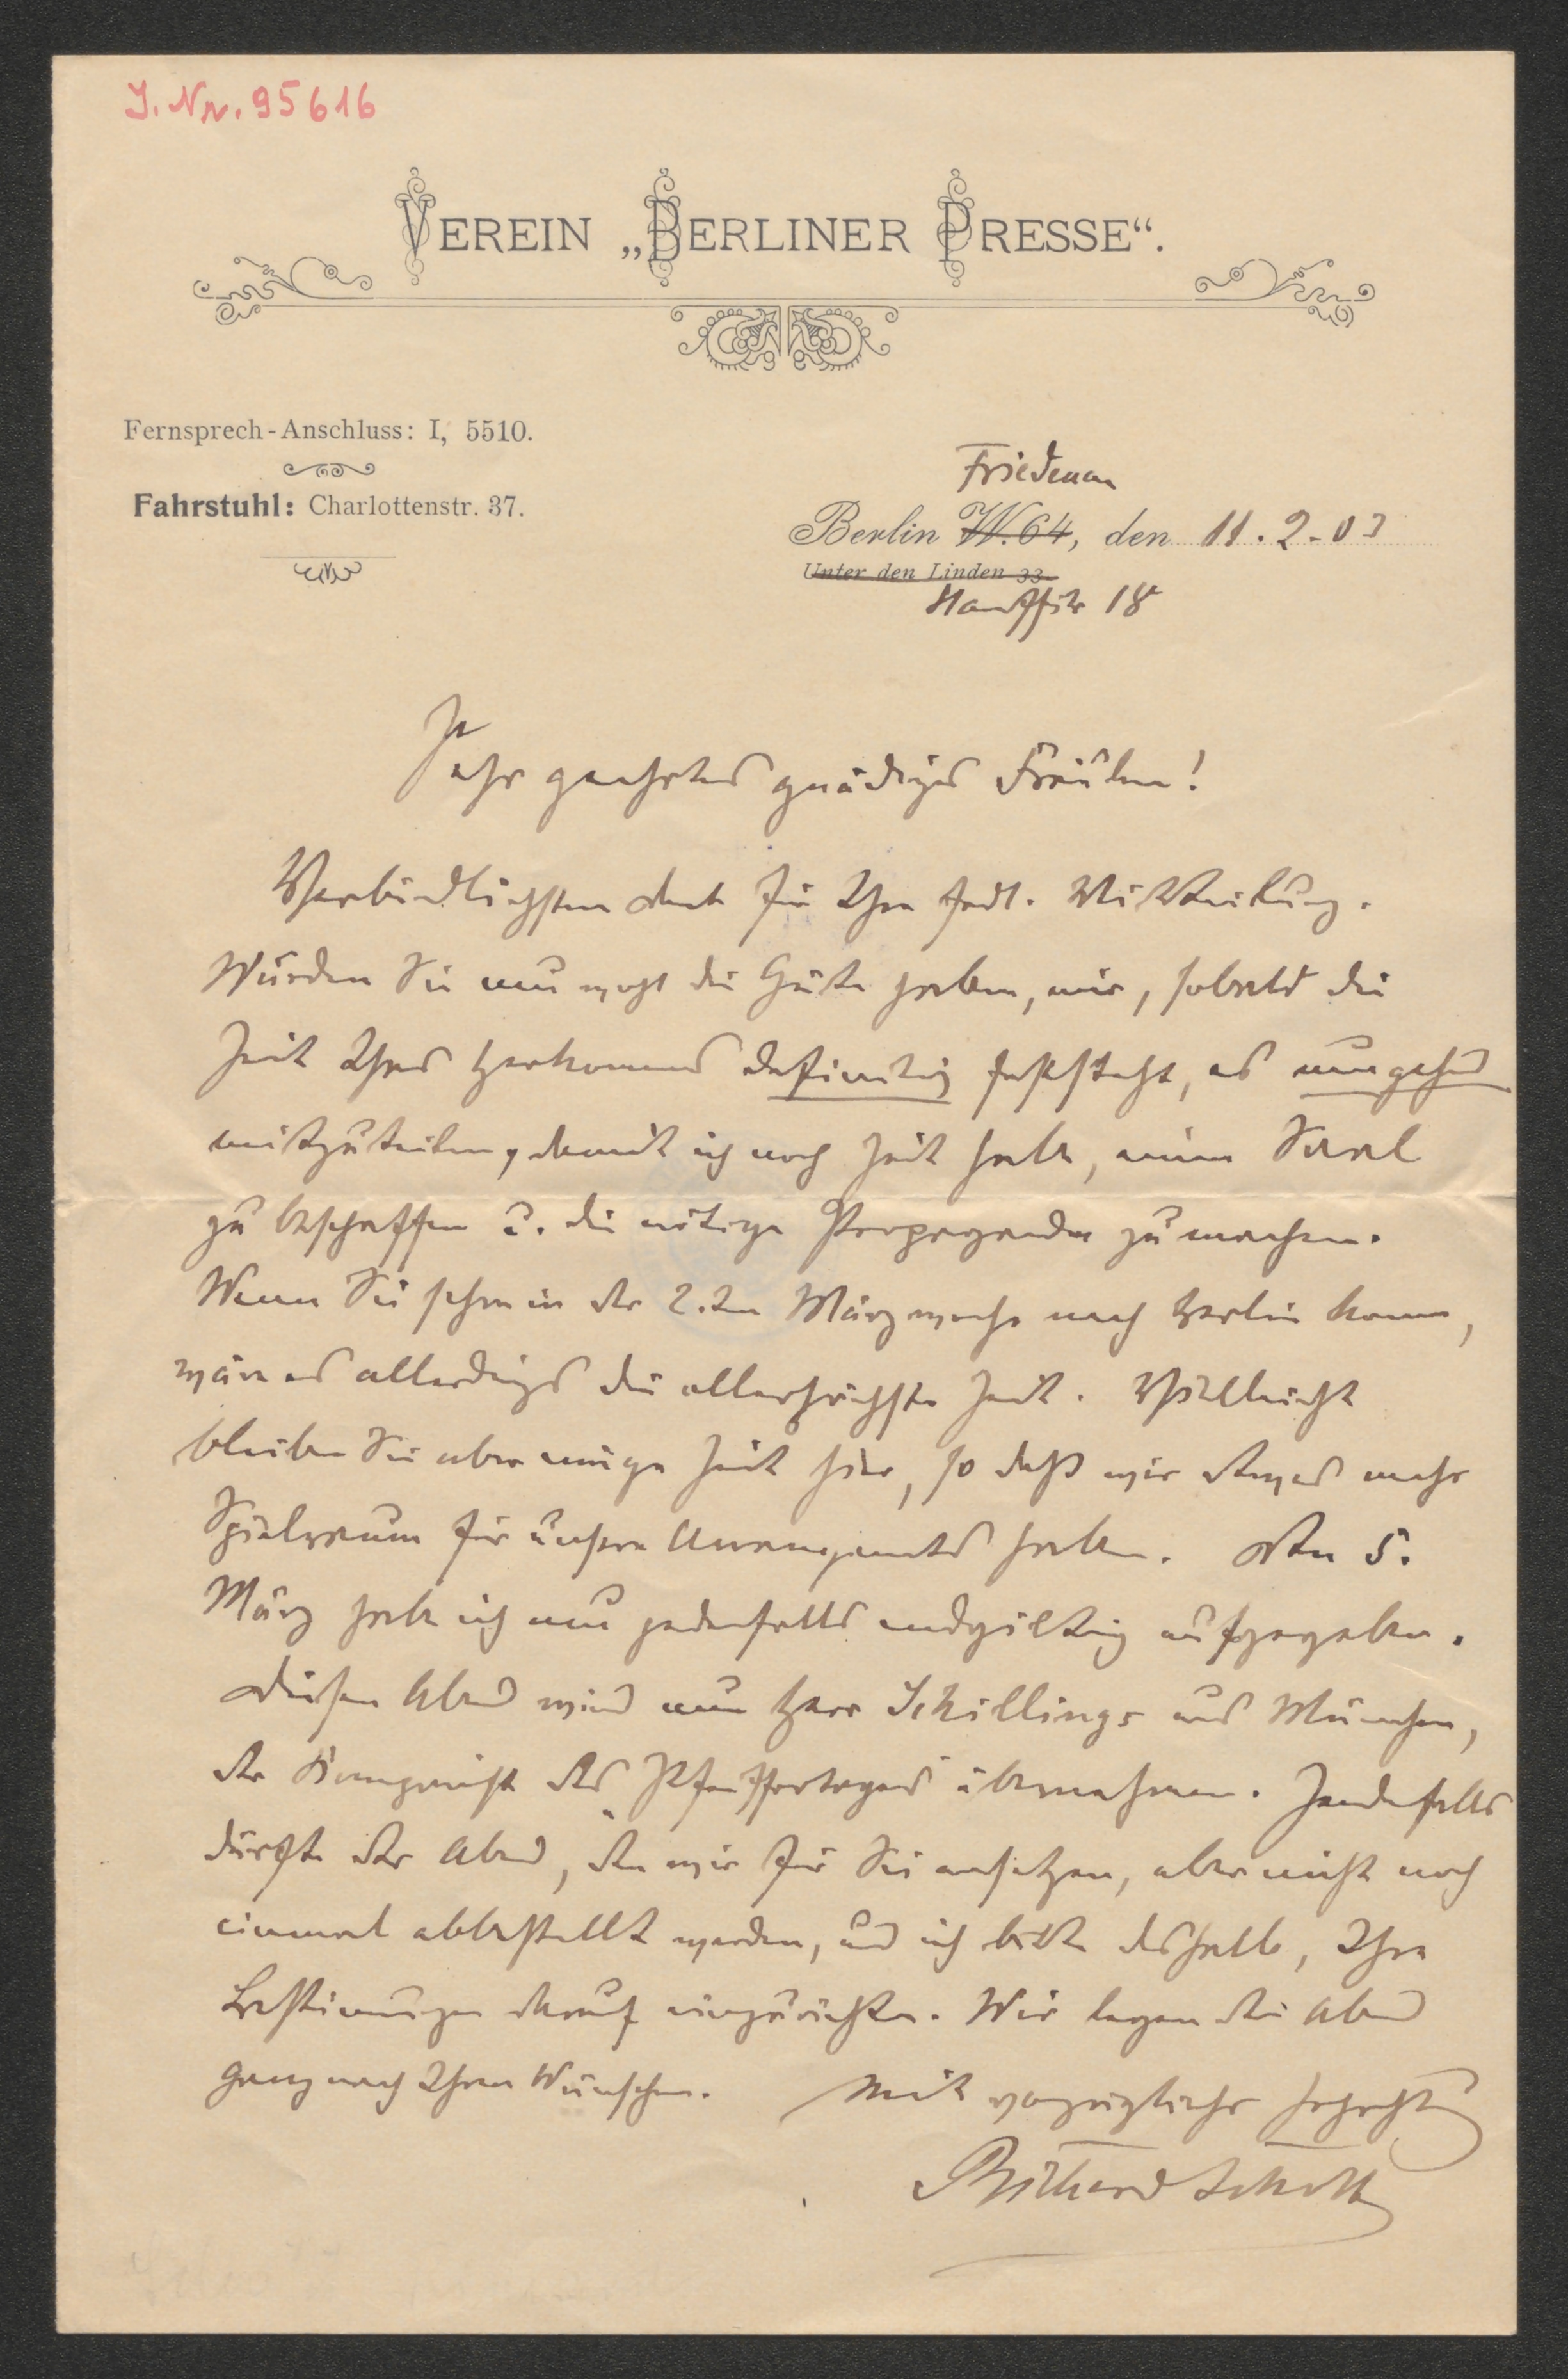 J. Nr. 95616
VEREIN „BERLINER PRESSE“.
Fernsprech-Anschluss: I, 5510.
Fahrstuhl: Charlottenstr. 37.
Friedenau
Berlin W. 64, den 11. 2. 03
Unter den Linden 33.
18
Sehr geehrtes gnädiges Fräulein!
Verbindlichsten Dank für Ihre frdl. Mitteilung.
Würden Sie nun wohl die Güte haben, mir, sobald die
Zeit Ihres Herkommens definitiv feststeht, es umgehend
mitzuteilen, damit ich noch Zeit habe, einen Saal
zu beschaffen u. die nötige Propaganda zu machen.
Wenn Sie schon in der 2.ten Märzwoche nach Berlin kommen,
wäre es allerdings die allerhöchste Zeit. Vielleicht
bleiben Sie aber einige Zeit hier, so daß wir etwas mehr
Spielraum für unsere Arrangements haben. Den 5.
März habe ich nun jedenfalls endgiltig aufgegeben.
Diesen Abend wird nun Herr Schillings aus München,
der Komponist des Pfeifertages übernehmen. Jedenfalls
dürfte der Abend, den wir für Sie ansetzen, aber nicht noch
einmal abbestellt werden, und ich bitte deshalb, Ihre
Bestimmungen darauf einzurichten. Wir legen den Abend
ganz nach Ihren Wünschen. Mit vorzüglicher Hochachtung
Richard Schott